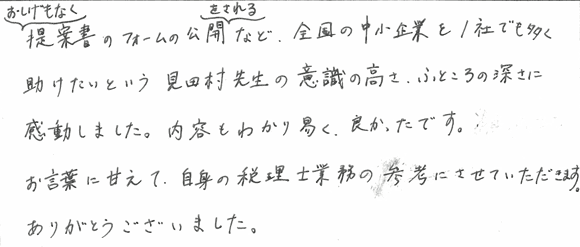 おしげもなく をされる
提案書のフォームの公開など、全国の中小企業を1社でも多く
助けたいという見田村先生の意識の高さ、ふところの深さに
感動しました。内容もわかり易く、良かったです。
お言葉に甘えて、自身の税理士業務の参考にさせていただきます。
ありがとうございました。